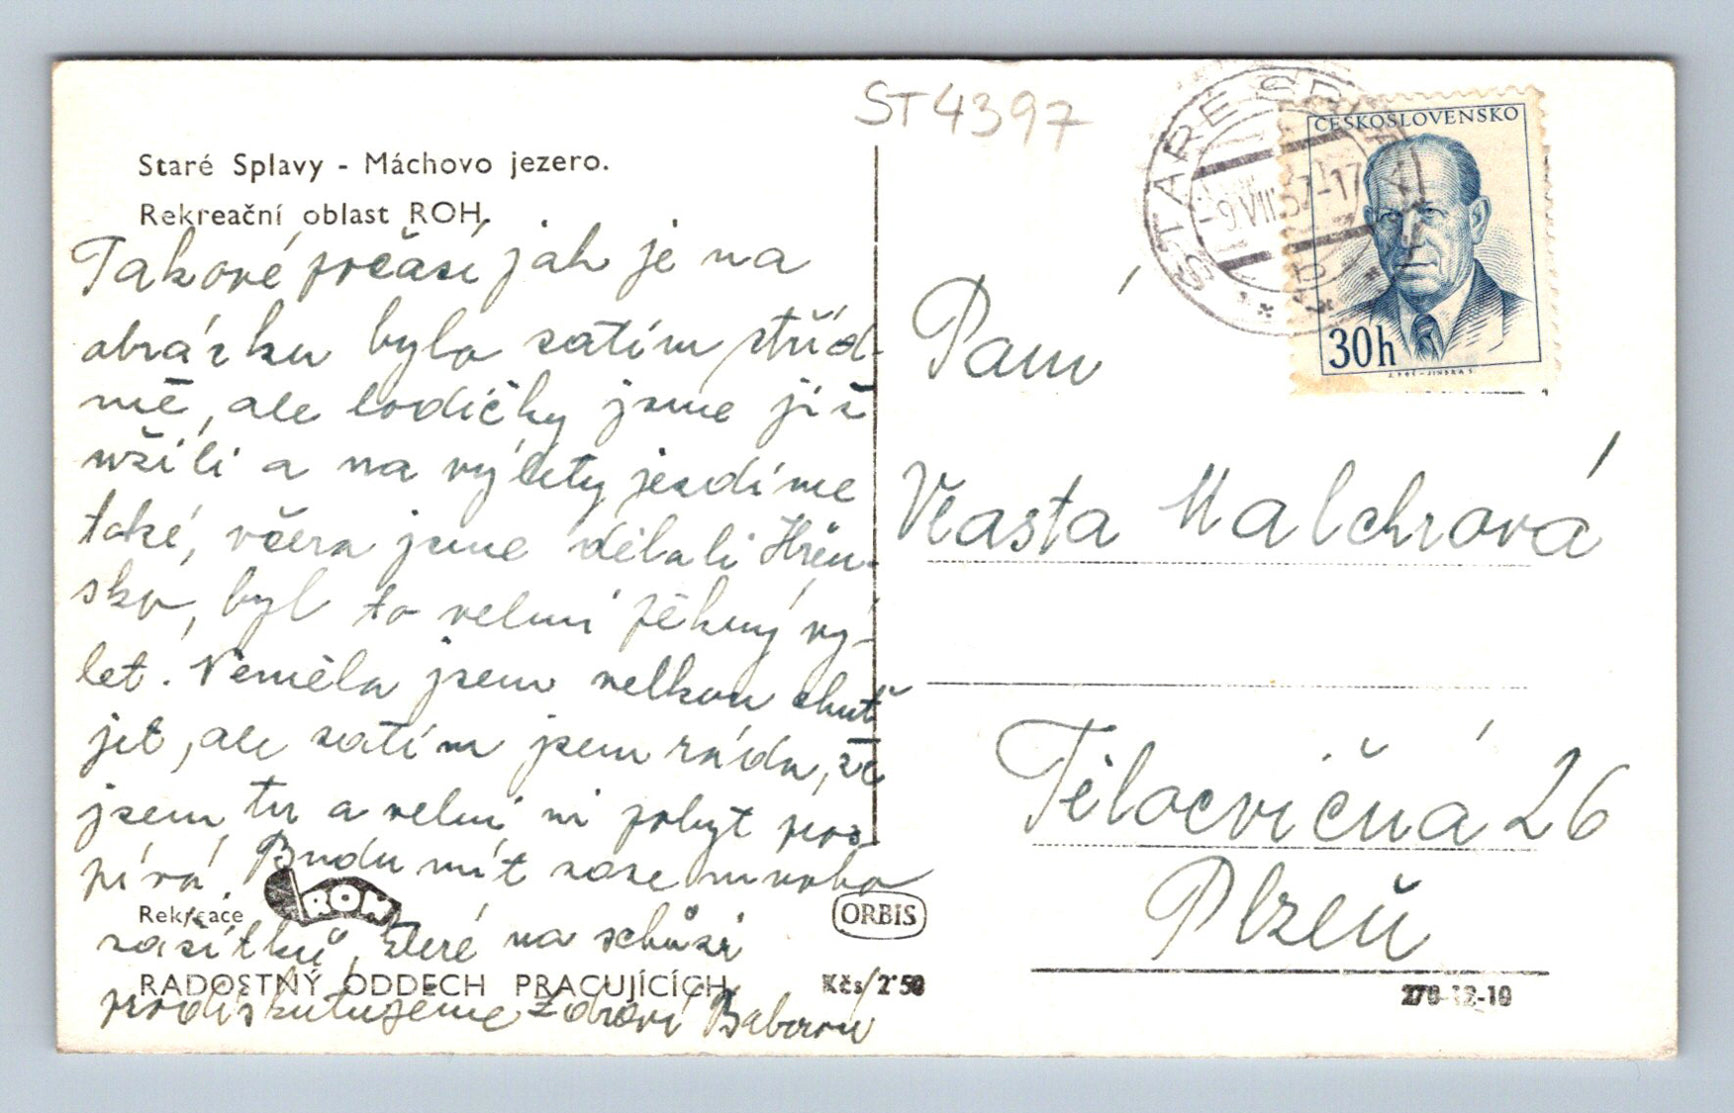 ST4397
Staré Splavy - Máchovo jezero.
Rekreační oblast ROH.
Takové počasí jak je na
obrázku bylo zatím stříd-
mě, ale lodičky jsme již
užili a na výlety jezdíme
také, včera jsme dělali Hřen-
sko, byl to velmi pěkný vý-
let. Neměla jsem velkou chuť
jet, ale zatím jsem ráda, že
jsem tu a velmi mi pobyt pros-
pívá. Budu mít zase mnoho
zážitků, které na schůzi
prodiskutujeme Zdraví
Rekreace
ROH
RADOSTNÝ ODDECH PRACUJÍCÍCH
ORBIS
Kčs 2·50
STARÉ SPLAVY
-9.VIII.57-17
ČESKOSLOVENSKO
30h
Paní
Vlasta Malchrová
Tělocvičná 26
Plzeň